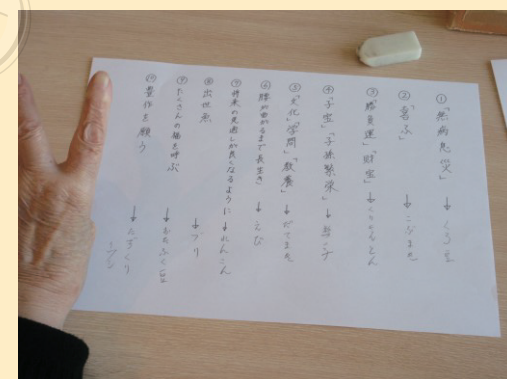 ①「無病息災」→くろ豆
②「喜ぶ」→こぶまき
③「勝負運」「財宝」→くりきんとん
④「子宝」「子孫繁栄」→数の子
⑤「文化」「学問」「教養」→だてまき
⑥腰が曲がるまで長生き→えび
⑦将来の見通しが良くなるように→れんこん
⑧出世魚→ブリ
⑨たくさんの福を呼ぶ→おたふく豆
⑩豊作を願う→たづくり